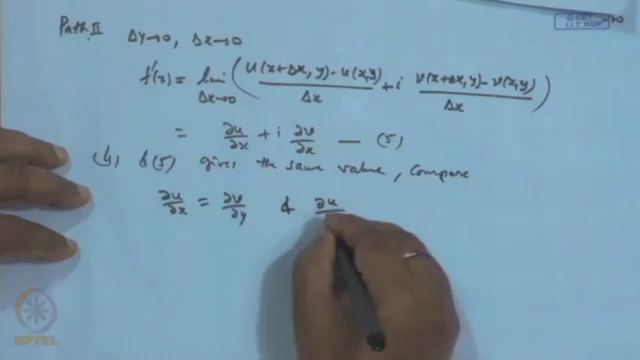 Path II Δy→0, Δx→0
f'(z) = lim Δx→0 ( u(x+Δx, y) - u(x,y) / Δx + i v(x+Δx, y) - v(x,y) / Δx )
= ∂u/∂x + i ∂v/∂x — (5)
(4) & (5) gives the same value, compare
∂u/∂x = ∂v/∂y & ∂u
NPTEL